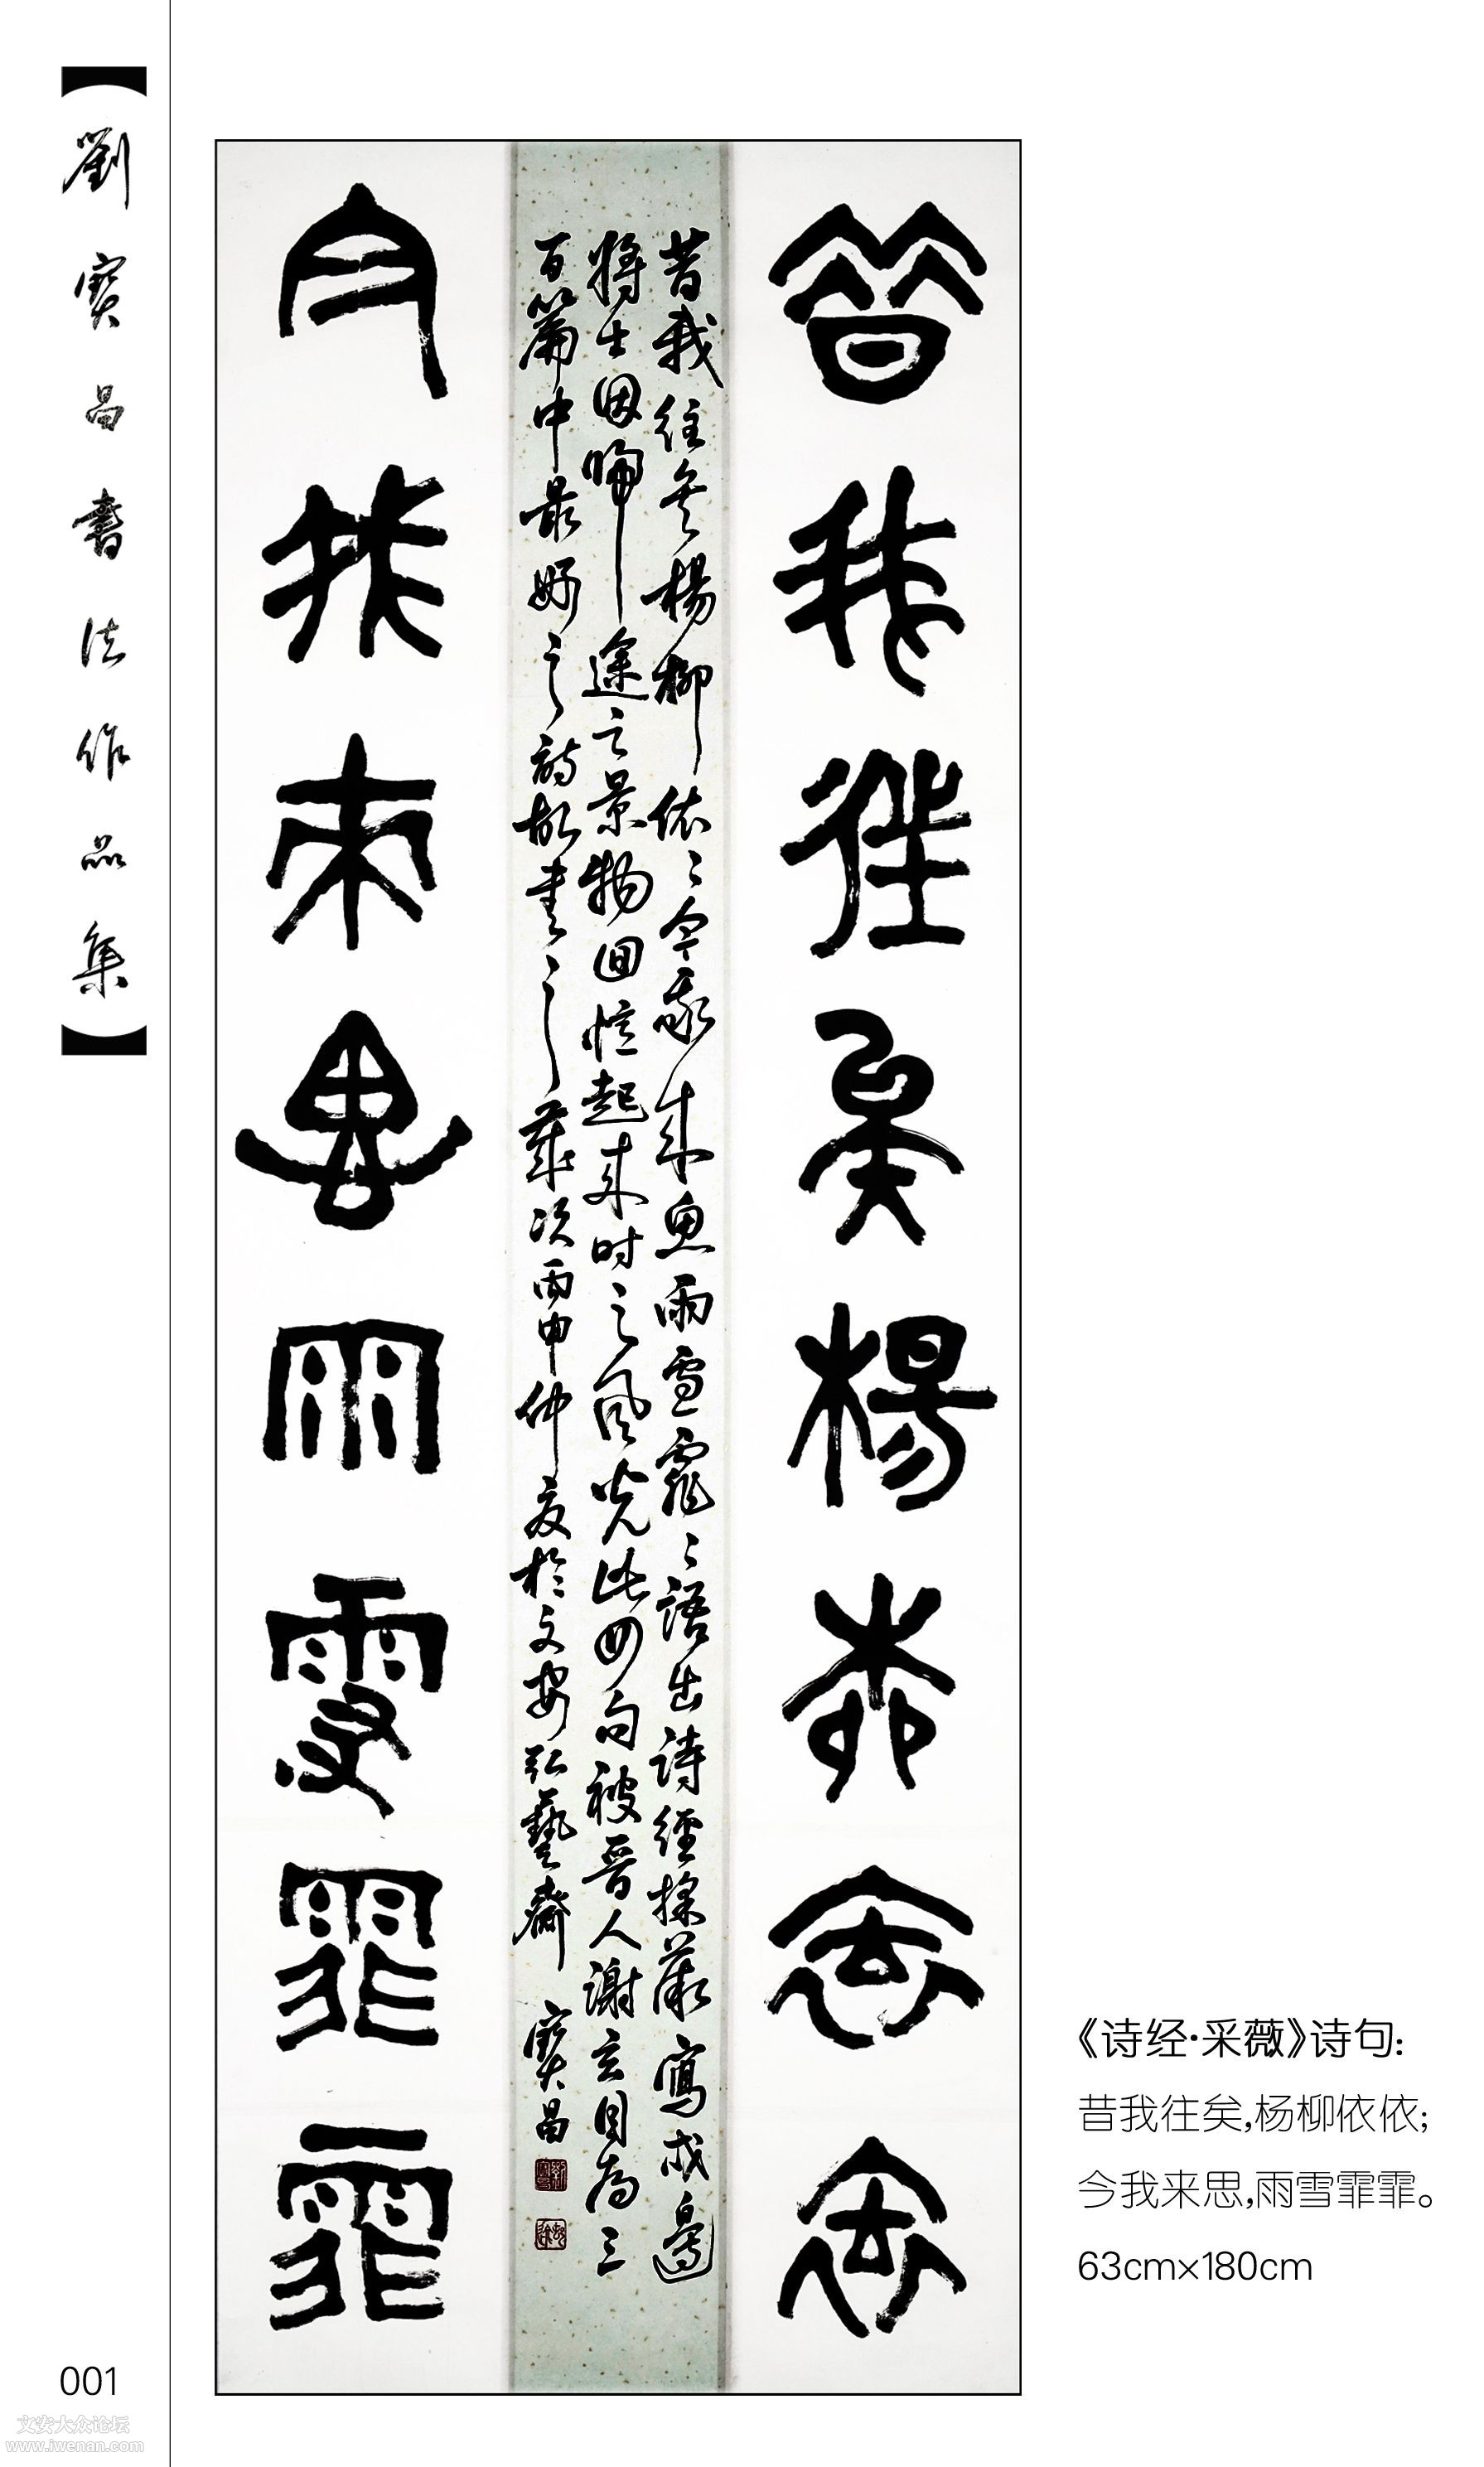 【劉寶昌書法作品集】
昔我往矣楊柳依依
今我來思雨雪霏霏
昔我往矣楊柳依〻今我来思雨雪霏〻語出詩經採薇寫戍邊
将士因歸途之景物回忆起来时之风光此四句被晋人謝玄目为三
百篇中最好之詩故書之歲次丙申仲夏於文安弘藝齋 寶昌
《诗经·采薇》诗句：
昔我往矣,杨柳依依；
今我来思,雨雪霏霏。
63cm×180cm
001
文安大众论坛
www.iwenan.com